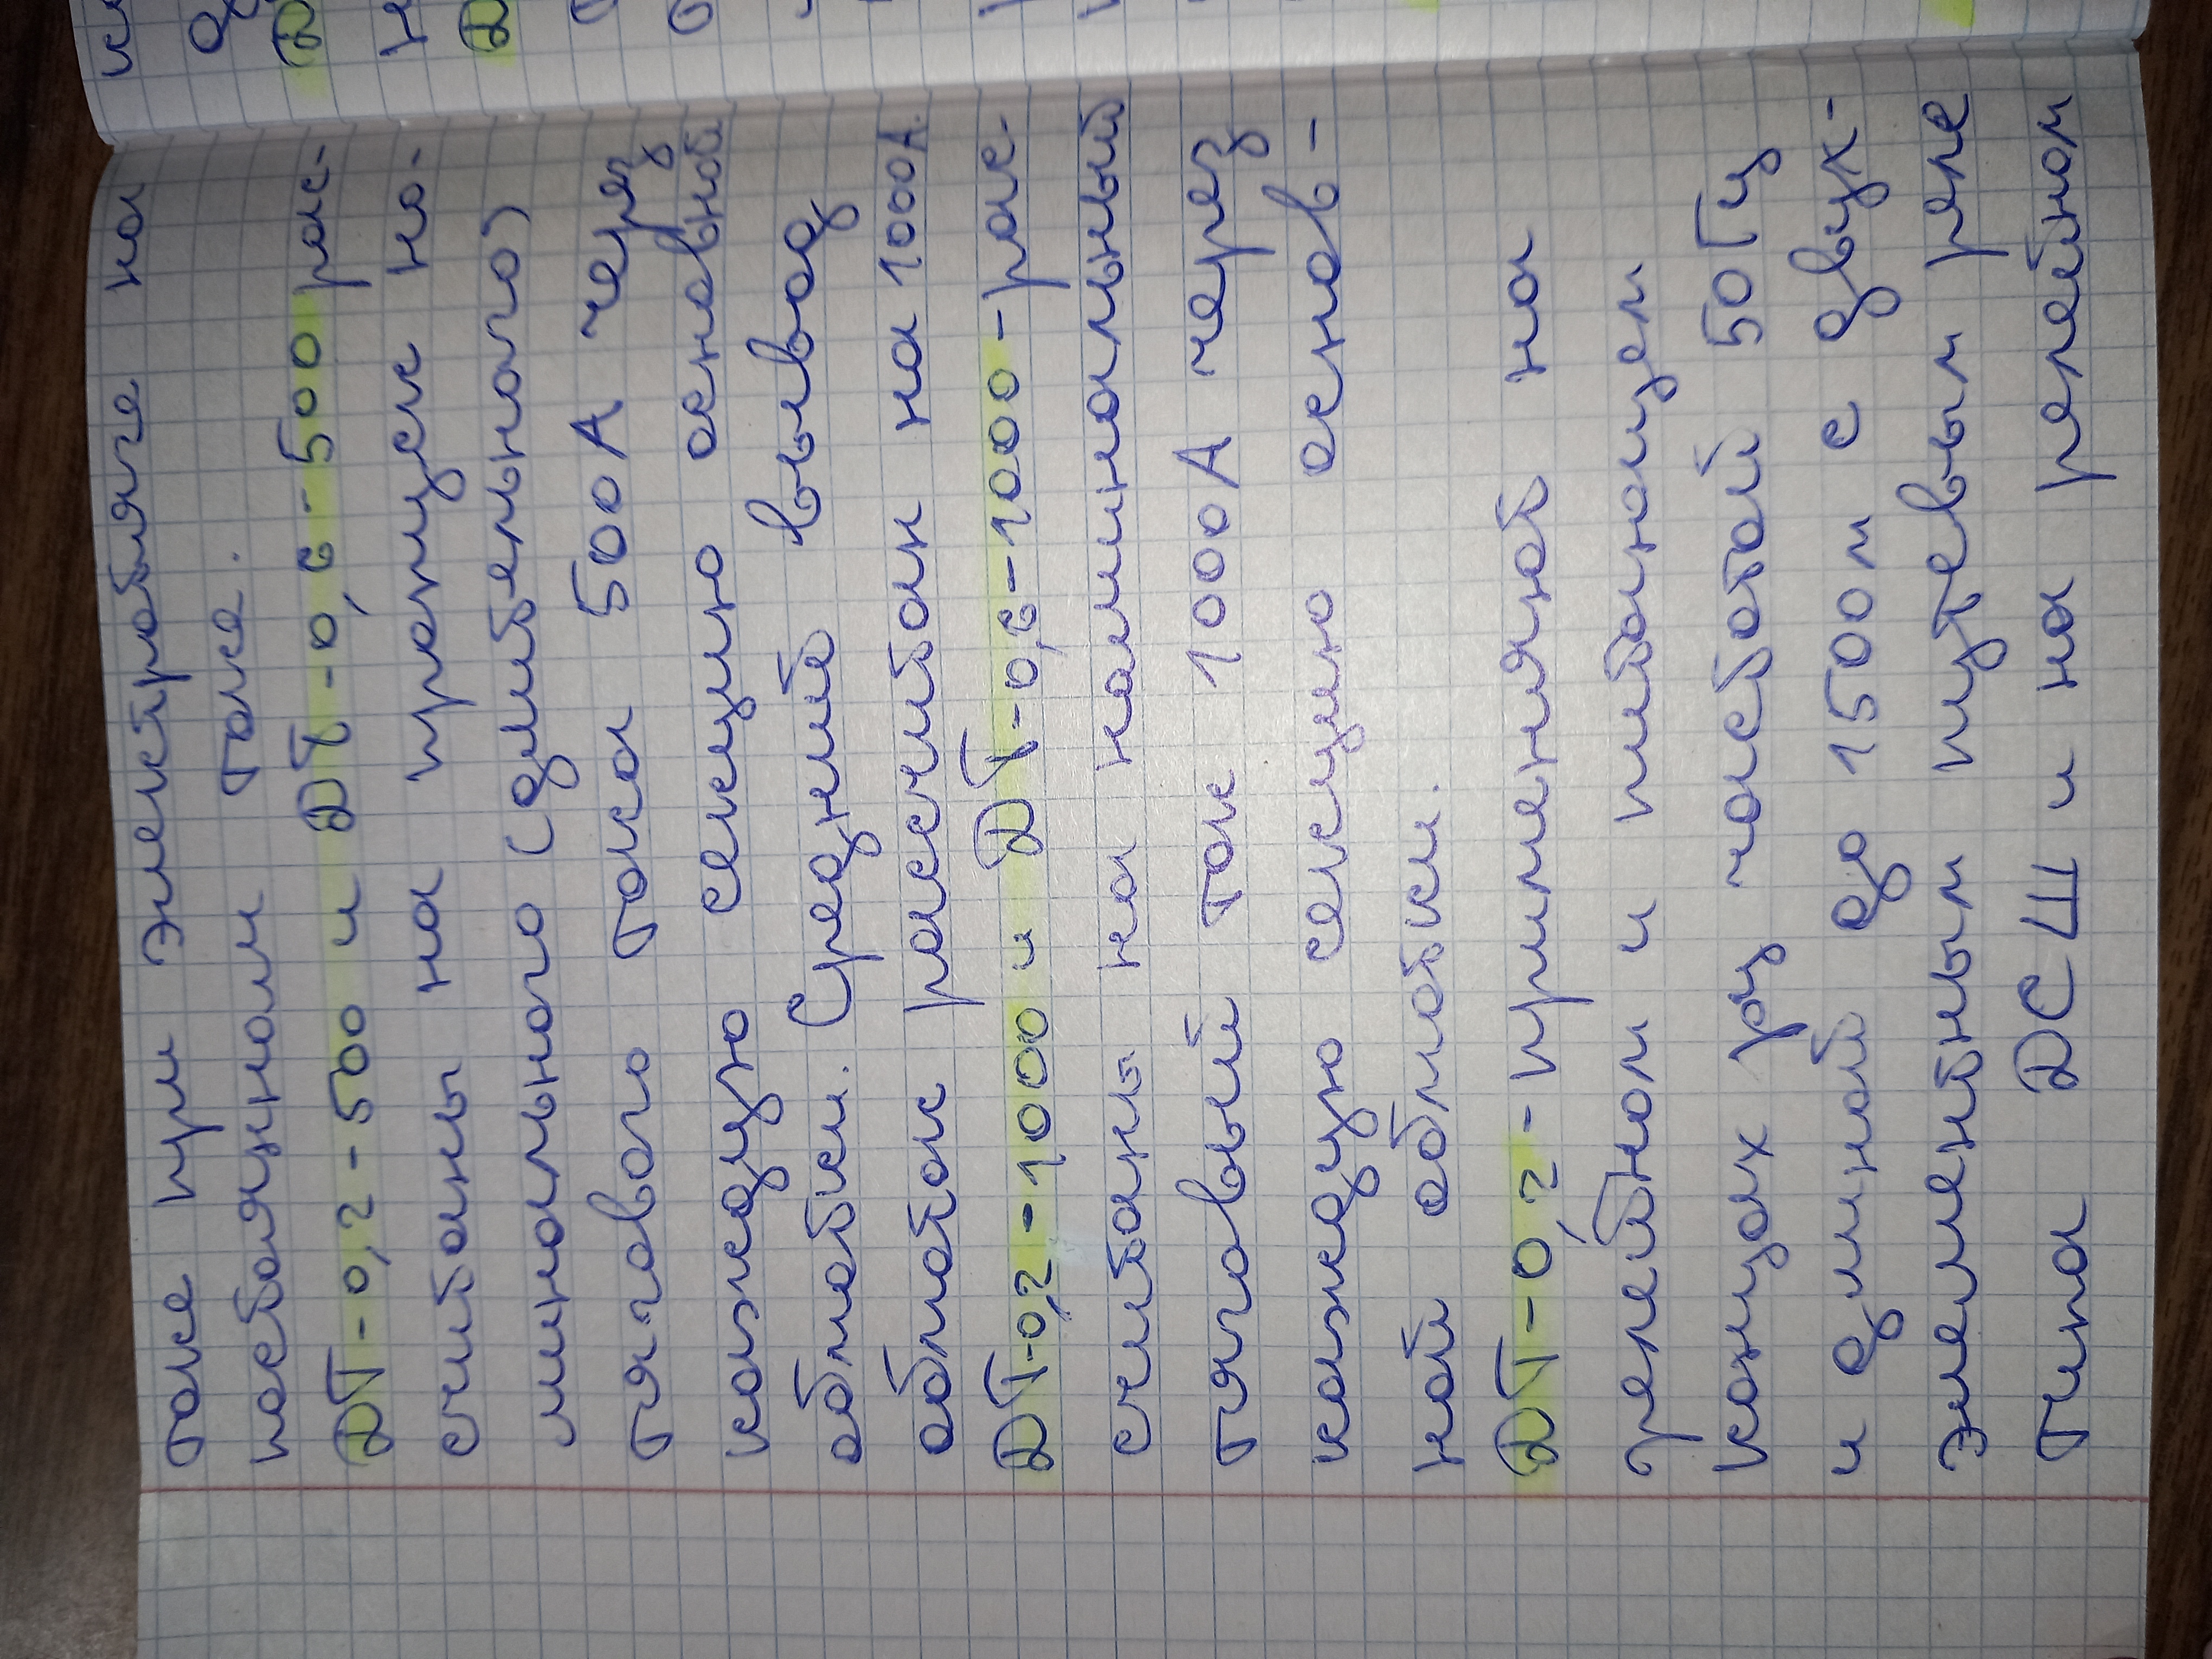 токе при электротяге на
постоянном токе.
ДТ-0,2-500 и ДТ-0,6-500 рас-
считаны на процесс но-
минального (длительного)
тягового тока 500А через
каждую секцию основной
обмотки. Средний вывод
обмоток рассчитан на 1000А.
ДТ-0,2-1000 и ДТ-0,6-1000-рас-
считаны на номинальный
тяговый ток 1000А через
каждую секцию основ-
ной обмотки.
ДТ-0,2-применяют на
релейном и питающем
концах рц частотой 50Гц
и длиной до 1500м с двух-
элементным путевым реле
типа ДСШ и на релейном